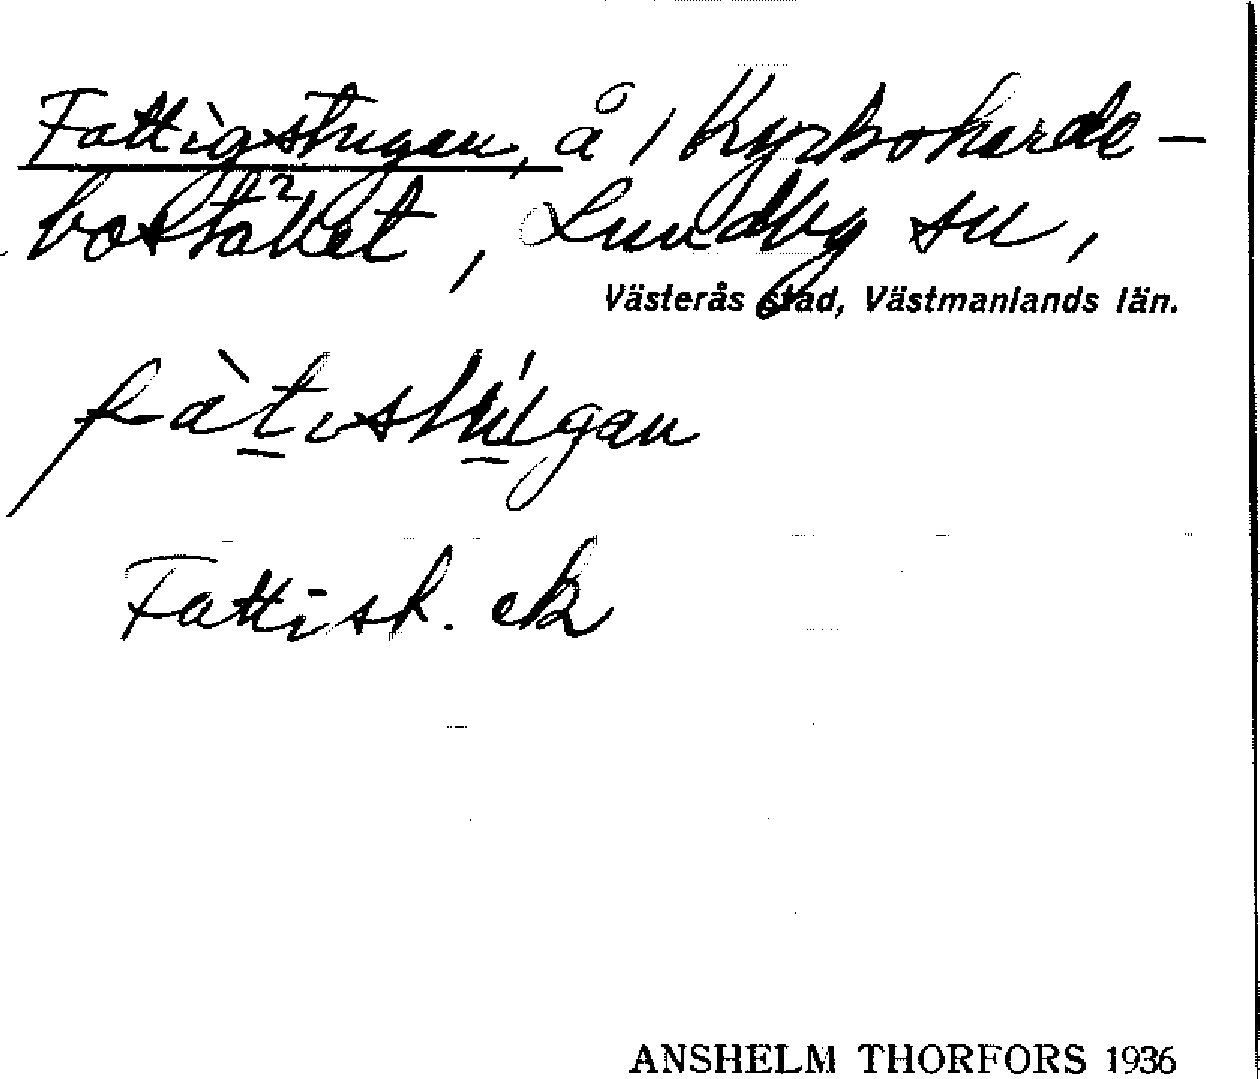 Fattigstugan, å 1 Kyrkoherde-
bostället, Lundby sn,
Västerås stad, Västmanlands län.
fàtistúgan
Fattist. ek
ANSHELM THORFORS 1936